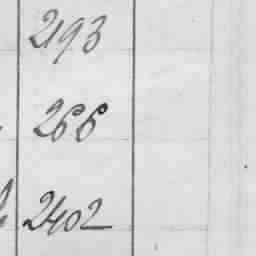 2193
266
2402